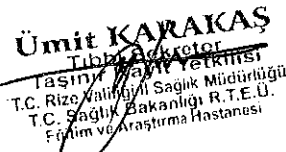 Ümit KARAKAŞ
Tıbbi Sekreter
Taşınır Kayıt Yetkilisi
T.C. Rize Valiliği İl Sağlık Müdürlüğü
T.C. Sağlık Bakanlığı R.T.E.Ü.
Eğitim ve Araştırma Hastanesi